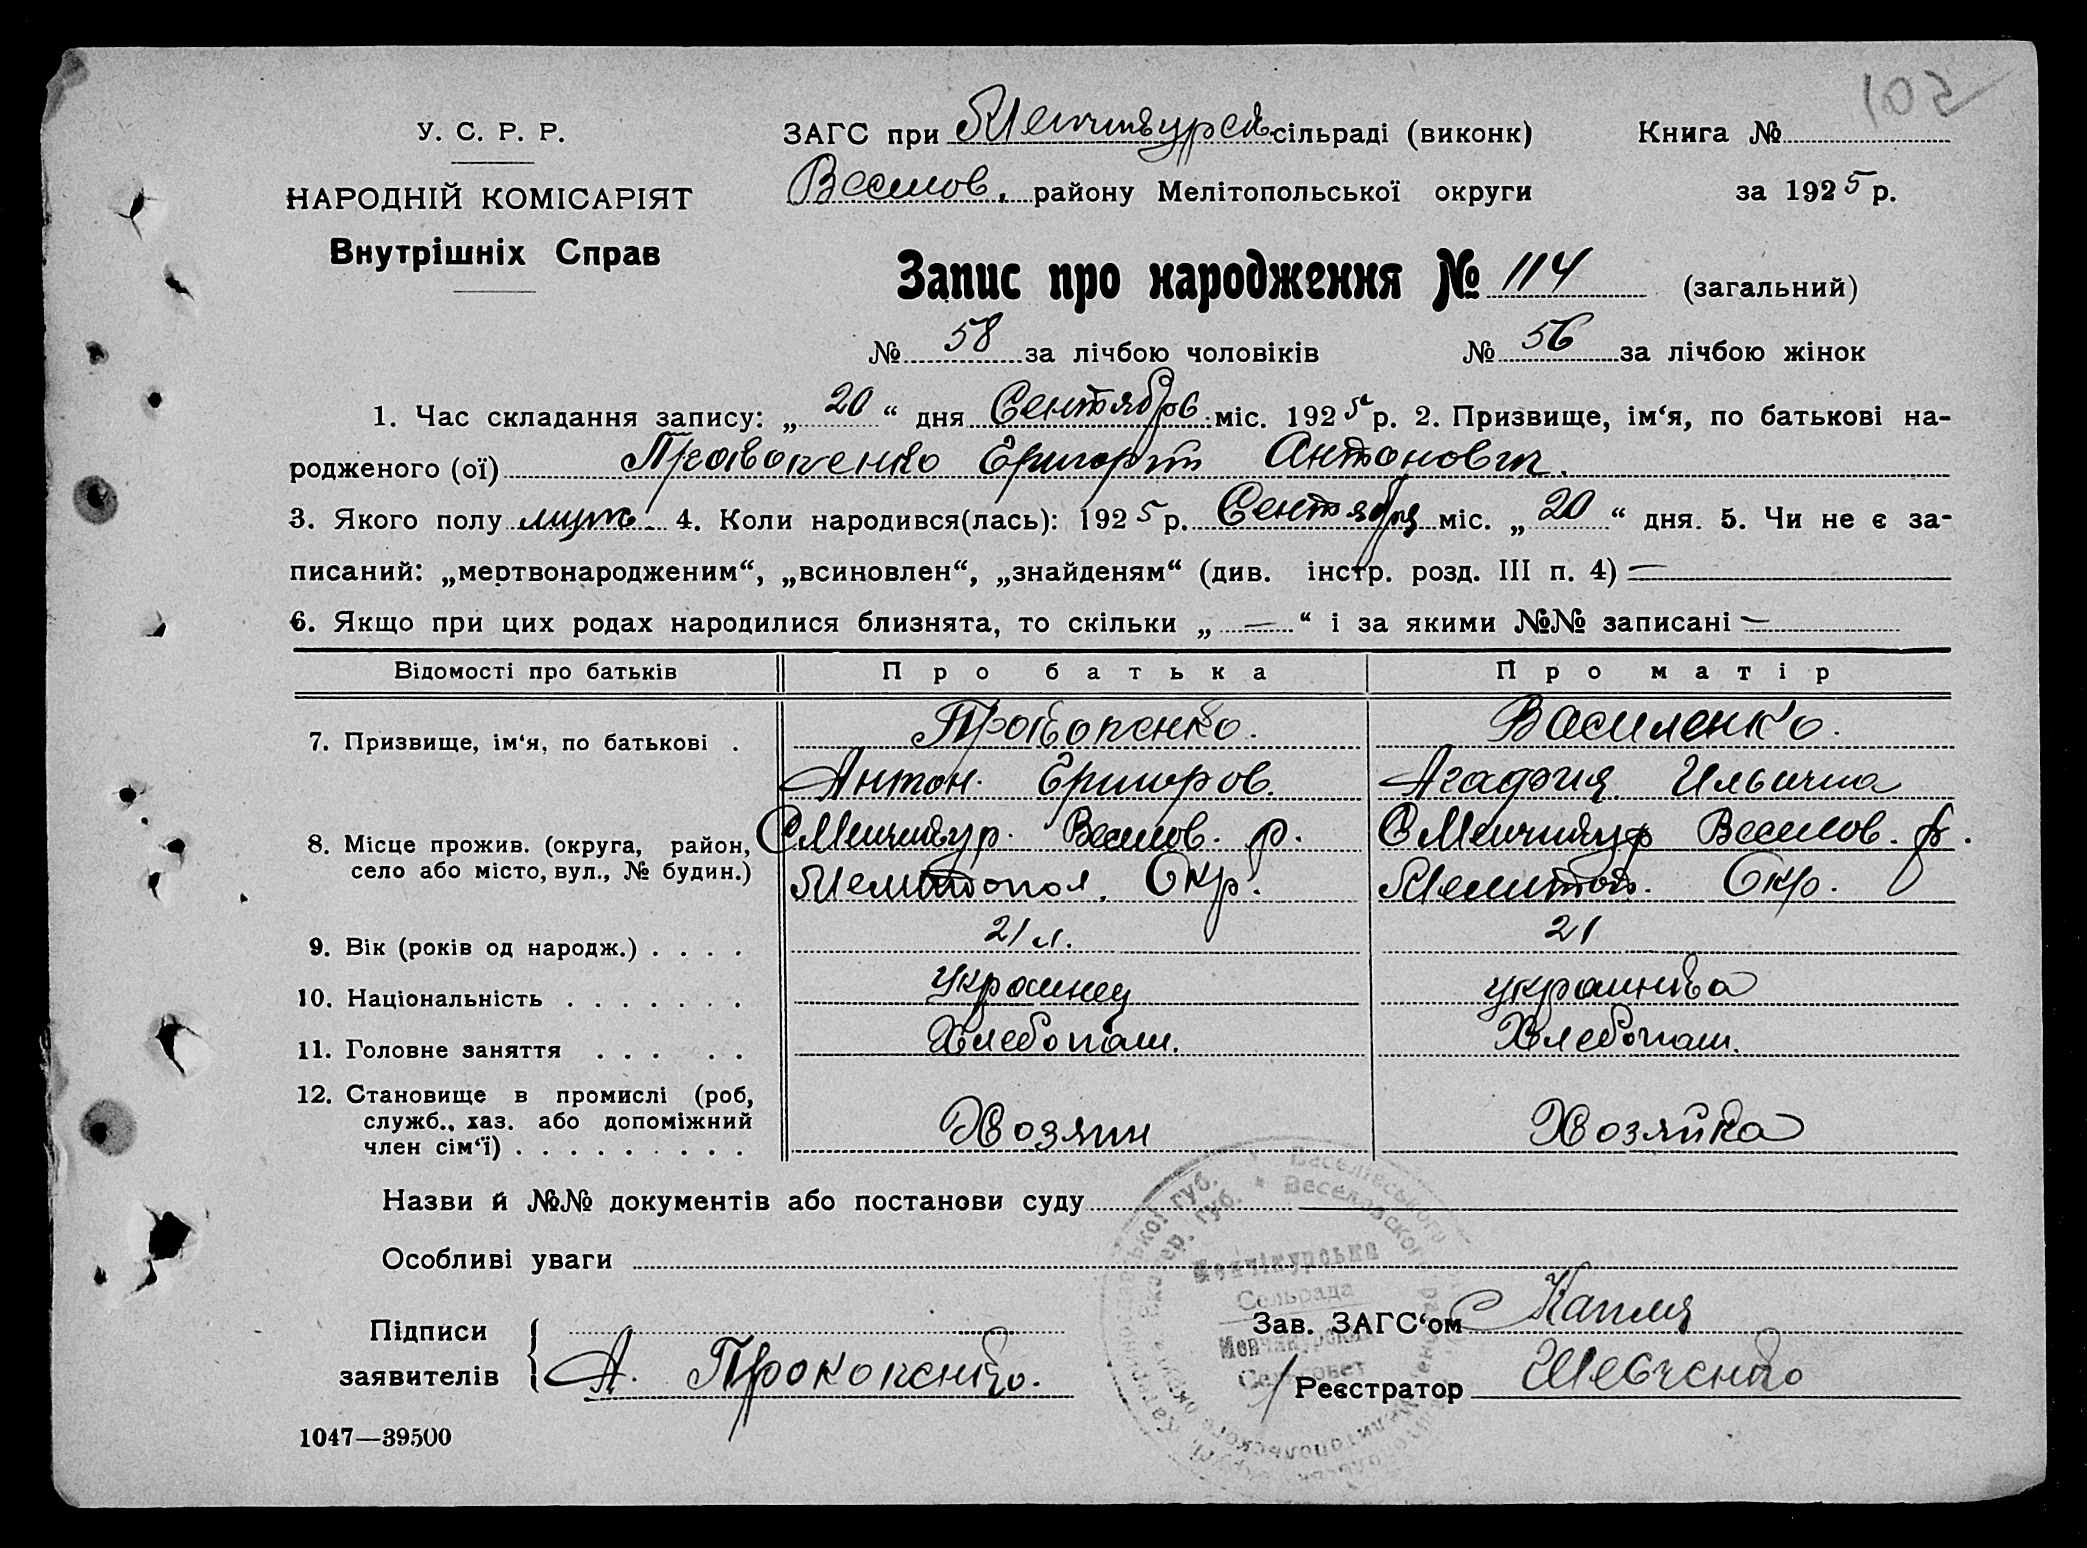 501
У. С. Р. Р.
НАРОДНІЙ КОМІСАРІЯТ
Внутрішніх Справ
ЗАГС при Менчикурск. сільраді (виконк) Книга №
Веселов. району Мелітопольської округи за 1925 р.
Запис про народження № 114 (загальний)
№ 58 за лічбою чоловіків № 56 за лічбою жінок
1. Час складання запису: „ 20 “ дня Сентября міс. 1925 р. 2. Призвище, ім‘я, по батькові на-
родженого (ої) Прокопенко Григорій Антонович.
3. Якого полу муж. 4. Коли народився(лась): 1925 р. Сентября міс. „ 20 “ дня. 5. Чи не є за-
писаний: „мертвонародженим“, „всиновлен“, „знайденям“ (див. інстр. розд. III п. 4) —
6. Якщо при цих родах народилися близнята, то скільки „ — “ і за якими №№ записані —
Відомості про батьків Про батька Про матір
7. Призвище, ім‘я, по батькові . Прокопенко. Василенко.
Антон Григоров. Агафия Ильична
8. Місце прожив. (округа, район, С Менчикур Веселов. р. С Менчикур Веселов. р.
село або місто, вул., № будин.) Мелитопол. Окр. Мелитоп. Окр.
9. Вік (років од народж.) . . . . 21 л. 21
10. Національність . . . . . . . украинец украинка
11. Головне заняття . . . . . Хлебопаш. Хлебопаш.
12. Становище в промислі (роб,
служб., хаз. або допоміжний Хозяин Хозяйка
член сім‘ї) . . . . . . . . .
Назви й №№ документів або постанови суду
Особливі уваги
Менчікурська
Сельрада
Менчикурский
Сельсовет
Підписи
заявителів А. Прокопенко.
Зав. ЗАГС‘ом Капля
Реєстратор Шевченко
1047—39500